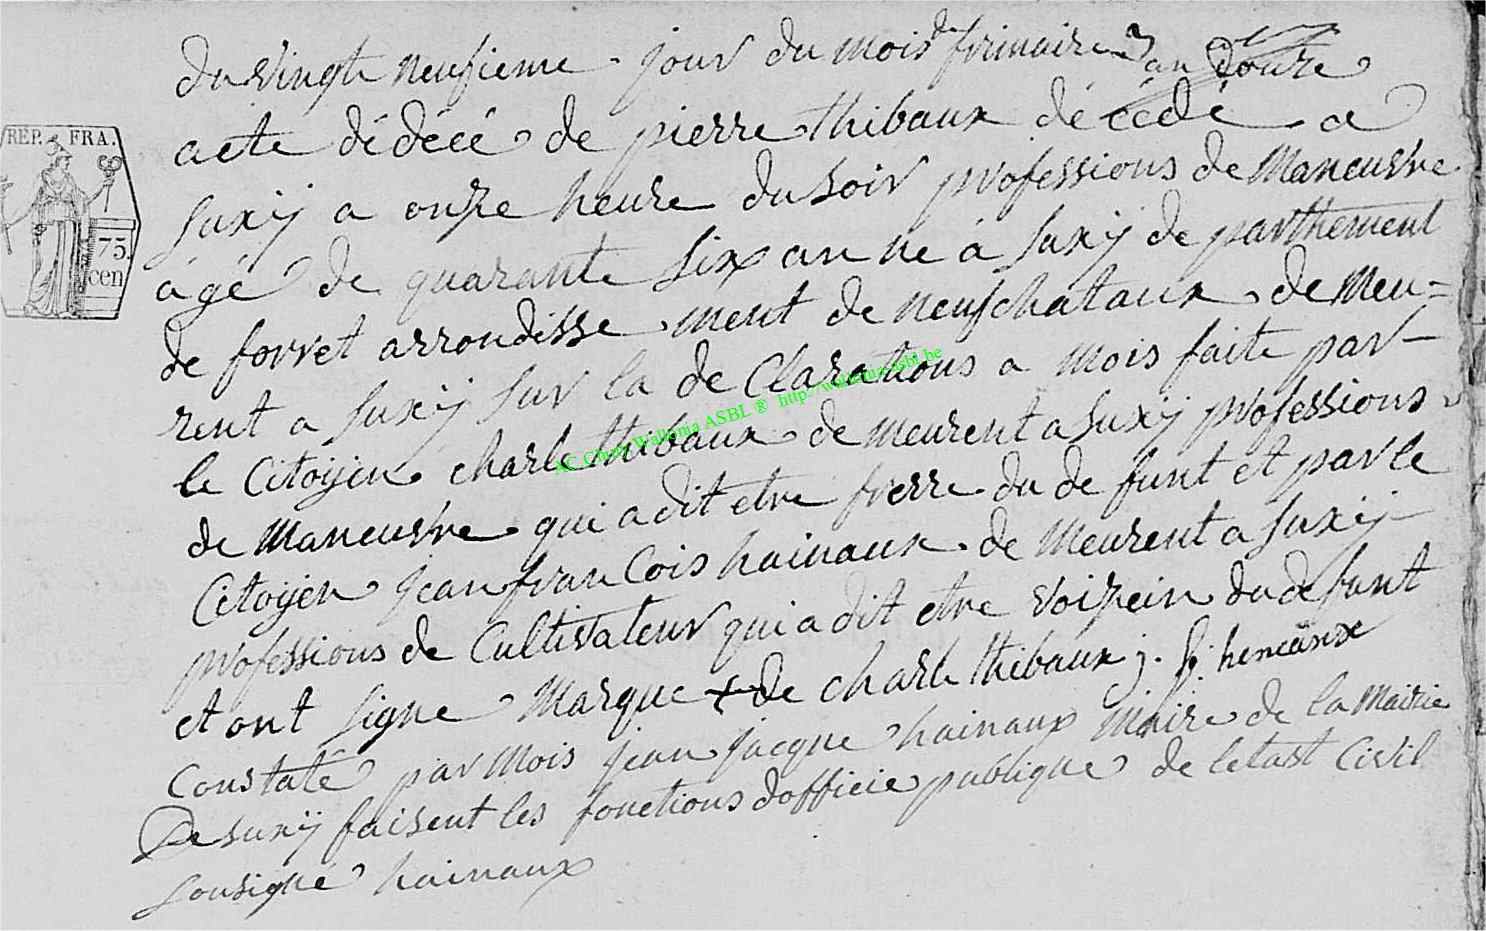 REP. FRA.
75.
cen
du vingt neufieme jour du mois de frimaire an douze
acte dédécé de pierre thibaux décédé a
Suxÿ a onze heure du soir professions de Maneusvre
âgé de quarante six an né a Suxÿ de parthement
de forret arrondisse ment de neufchataux de Meu=
rent a Suxÿ sur la de Clarations a Mois faite par
le Citoÿen charle thibaux de meurent a Suxÿ professions
de Maneusvre qui a dit etre frerre du de funt et par le
Citoÿen jean fran Cois hainaux de Meurent a Suxÿ
professions de Cultivateur qui a dit etre Voizein du de funt
et ont signe Marque + de charle thibaux j. f. heneaux
Constaté par Mois jean jacque hainaux Maire de la Mairie
De Suxÿ faisent les fonctions dofficie publique de letast Civil
Sousigné hainaux
AC Chiny Wallonia ASBL ® http://wallonia-asbl.be